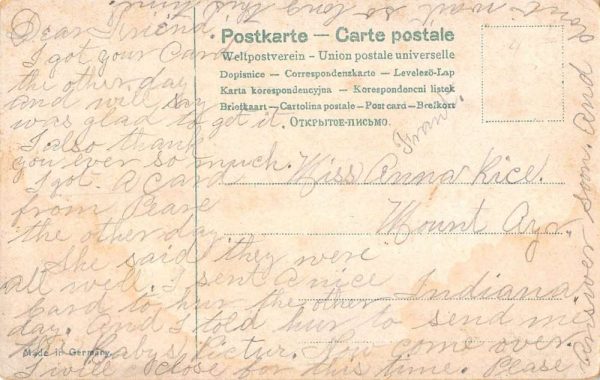 Dear Friend,
I got your Card
the other day
and will say
was glad to get it.
I also thank
you ever so much.
I got. A Card
from Pearl
the other day.
She said they were
all well. I sent a nice
Card to hur the other
day. And I told hur to send me
the Babys Pictur. You come over.
I will close for this time. Please
Answer soon. And
dont wait so long this time.
Postkarte — Carte postale
Weltpostverein - Union postale universelle
Dopisnice — Correspondenzkarte — Levelező-Lap
Karta korespondencyjna — Korespondenčni listek
Briefkaart — Cartolina postale — Post card — Brefkort
ОТКРЫТОЕ-ПИСЬМО.
Miss Anna Rice.
Mount Ayr.
Indiana
Made in Germany